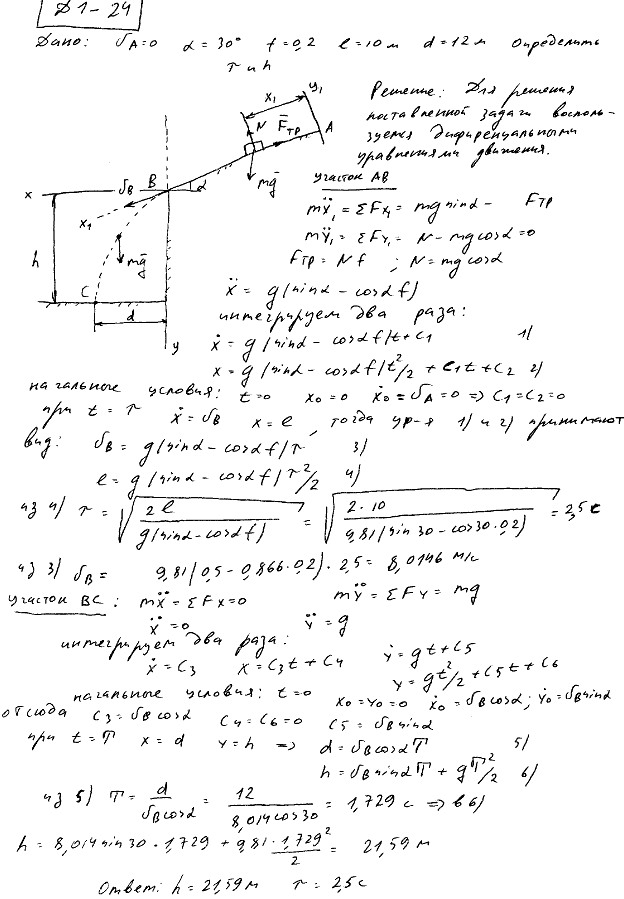 Д1-24
Дано: υA=0 α=30° f=0,2 l=10м d=12м определить
τ и h
Решение: Для решения
поставленной задачи восполь-
зуемся диференцальными
уравнениями движения.
участок АВ
x₁ y₁ N F̄тр A
x υB B α mḡ
x₁ h mḡ
C d y
mẍ₁ = ΣFx₁ = mg sinα - Fтр
mÿ₁ = ΣFy₁ = N - mg cosα = 0
Fтр = Nf ; N = mg cosα
ẍ = g(sinα - cosα f)
интегрируем два раза:
ẋ = g(sinα - cosα f)t + C1 1)
x = g(sinα - cosα f)t²/2 + C1t + C2 2)
начальные условия: t=0 x0=0 ẋ0=υA=0 => C1=C2=0
при t=τ ẋ=υB x=l, тогда ур-я 1) и 2) принимают
вид: υB = g(sinα - cosα f)τ 3)
l = g(sinα - cosα f)τ²/2 4)
из 4) τ = √(2l / g(sinα - cosα f)) = √(2·10 / 9,81(sin30 - cos30·0,2)) = 2,5 с
из 3) υB = 9,81(0,5 - 0,866·0,2)·2,5 = 8,0146 м/с
участок ВС: mẍ = ΣFx = 0 mÿ = ΣFy = mg
ẍ = 0 ÿ = g
интегрируем два раза:
ẋ = C3 x = C3t + C4 ẏ = gt + C5
y = gt²/2 + C5t + C6
начальные условия: t=0 x0=y0=0 ẋ0=υBcosα; ẏ0=υBsinα
отсюда C3=υBcosα C4=C6=0 C5=υBsinα
при t=T x=d y=h => d=υBcosαT 5)
h=υBsinαT + gT²/2 6)
из 5) T = d / υBcosα = 12 / 8,014cos30 = 1,729 с => в 6)
h = 8,014 sin30 · 1,729 + 9,81·1,729²/2 = 21,59 м
Ответ: h = 21,59 м τ = 2,5 с